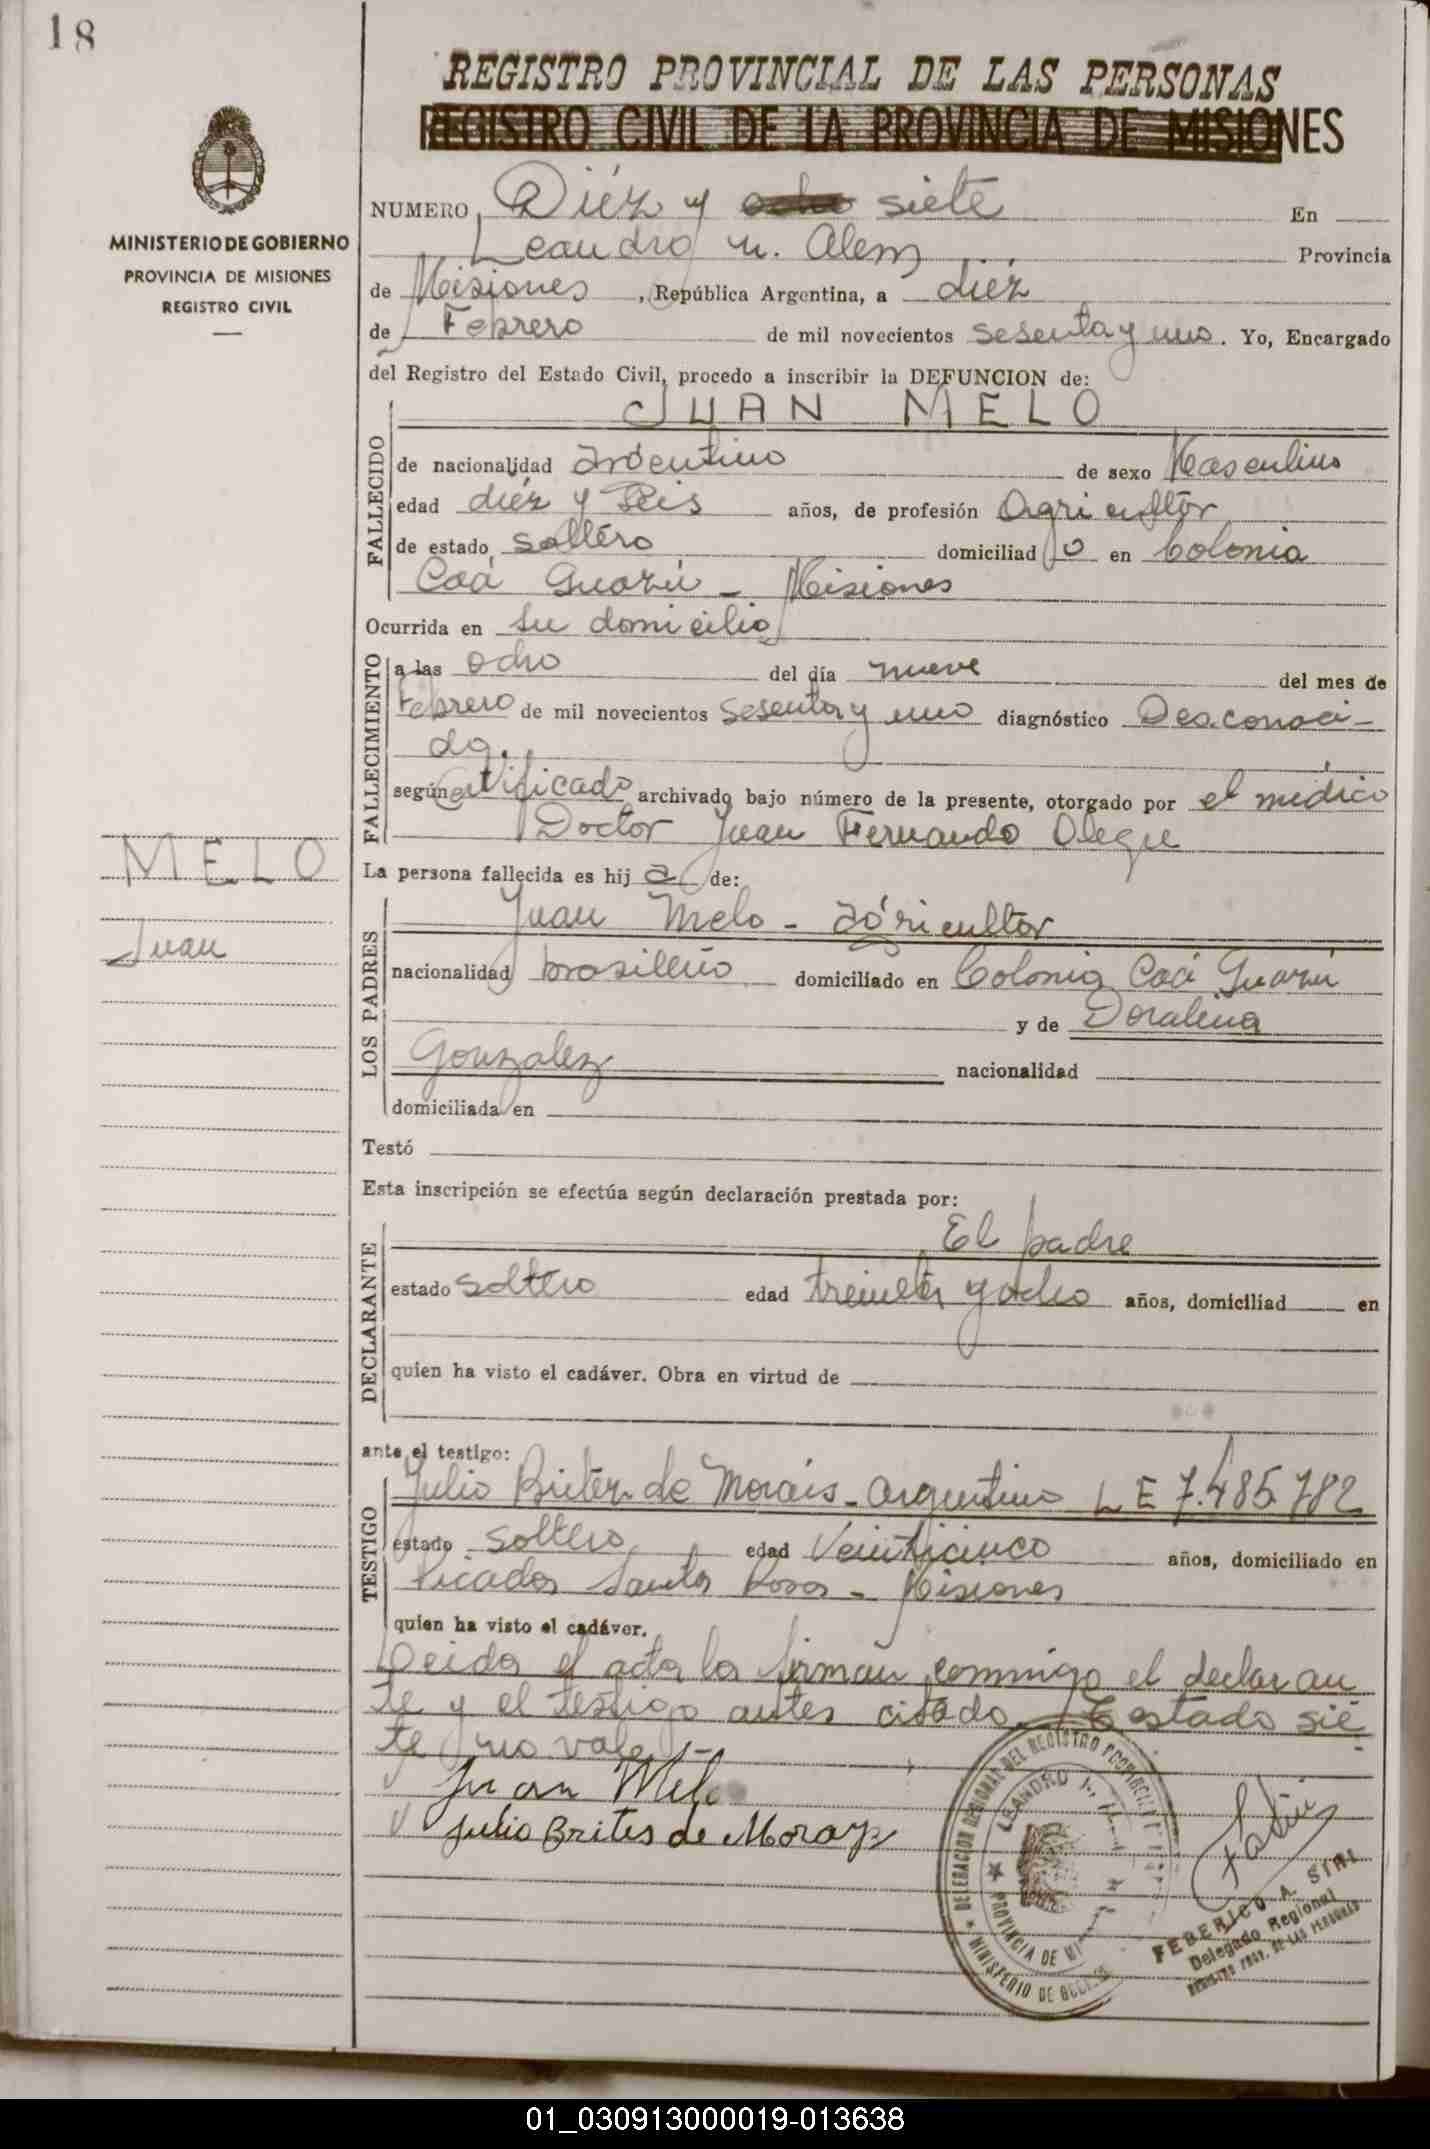 18
REGISTRO PROVINCIAL DE LAS PERSONAS
REGISTRO CIVIL DE LA PROVINCIA DE MISIONES
MINISTERIO DE GOBIERNO
PROVINCIA DE MISIONES
REGISTRO CIVIL
NUMERO Diéz y ocho siete En
Leandro N. Alem Provincia
de Misiones, República Argentina, a diéz
de Febrero de mil novecientos sesenta y uno. Yo, Encargado
del Registro del Estado Civil, procedo a inscribir la DEFUNCION de:
JUAN MELO
FALLECIDO
de nacionalidad argentino de sexo Masculino
edad diéz y seis años, de profesión Agricultor
de estado soltero domiciliad o en Colonia
Caá Guazú - Misiones
Ocurrida en su domicilio
FALLECIMIENTO
a las ocho del día nueve del mes de
Febrero de mil novecientos sesenta y uno diagnóstico Desconoci-
do.
según certificado archivado bajo número de la presente, otorgado por el médico
Doctor Juan Fernando Olegue
MELO
Juan
La persona fallecida es hij o de:
LOS PADRES
Juan Melo - agricultor
nacionalidad brasileño domiciliado en Colonia Caá Guazú
y de Doralina
Gonzalez nacionalidad
domiciliada en
Testó
Esta inscripción se efectúa según declaración prestada por:
DECLARANTE
El padre
estado soltero edad treinta y ocho años, domiciliad en
quien ha visto el cadáver. Obra en virtud de
ante el testigo:
TESTIGO
Julio Britez de Morais - argentino L E 7.485.782
estado soltero edad veinticinco años, domiciliado en
Picada Santa Rosa - Misiones
quien ha visto el cadáver.
Leida el acta la firman conmigo el declaran
te y el testigo antes citado. Testado sie
te no vale -
Juan Melo
Julio Brites de Morays
DELEGACION REGIONAL DEL REGISTRO PROVINCIAL
LEANDRO N.
PROVINCIA DE MI
MINISTERIO DE GOBIERNO
FEDERICO A. STRI
Delegado Regional
REGISTRO PROV. DE LAS PERSONAS
01_030913000019-013638